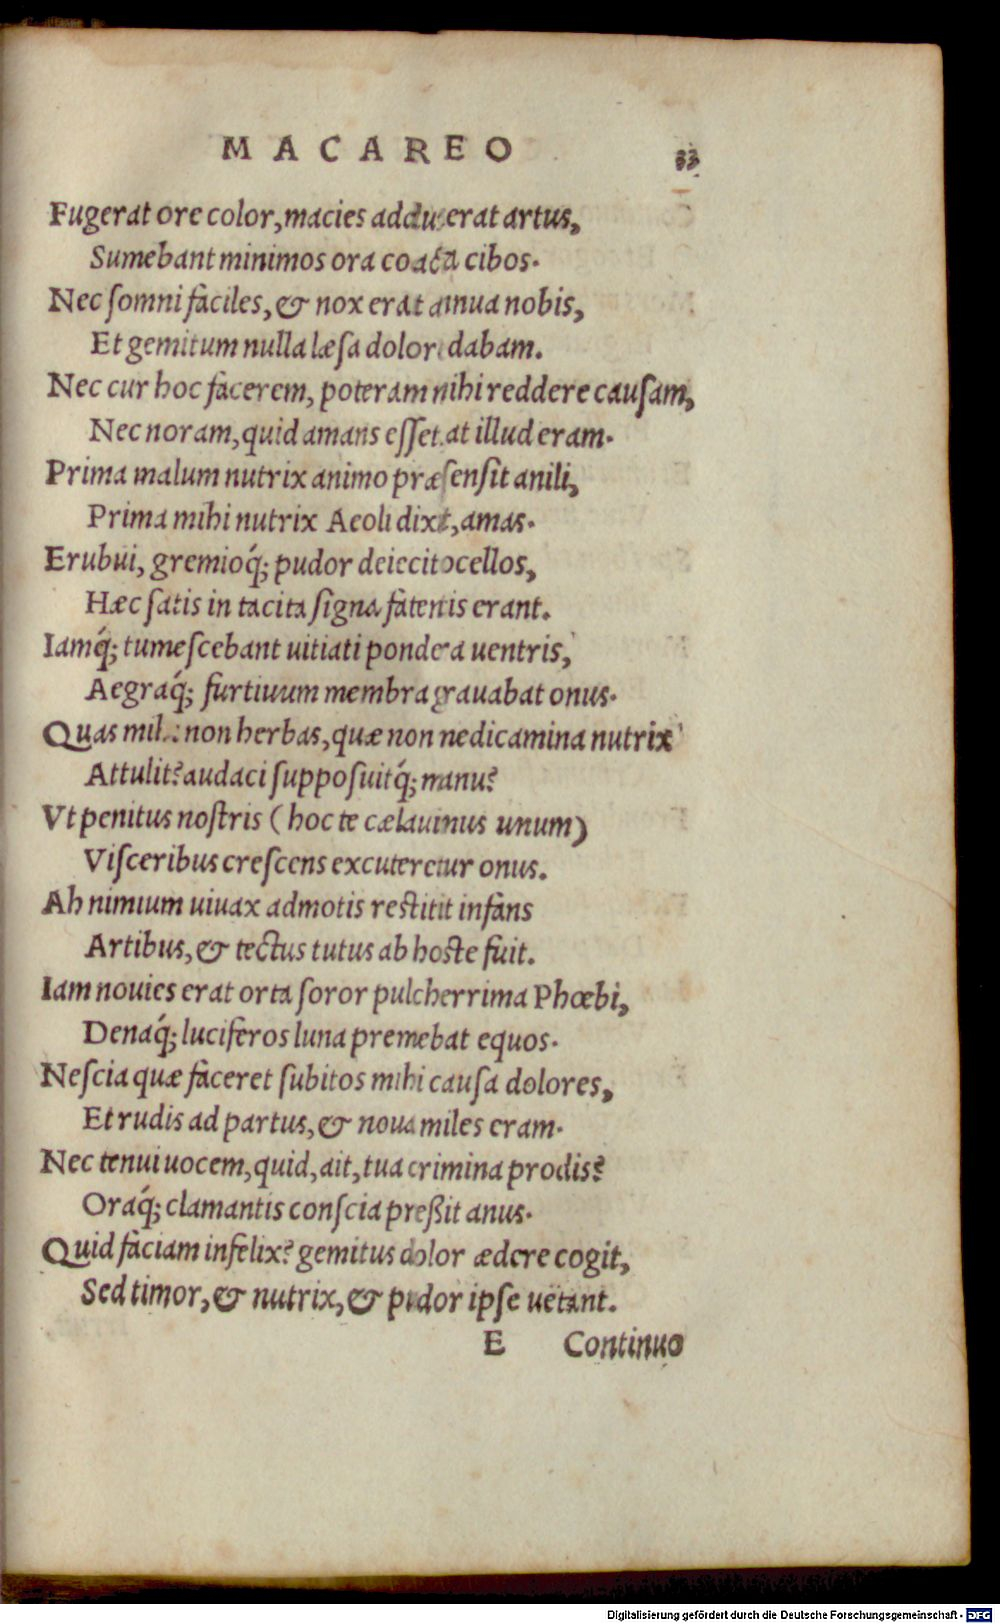 MACAREO 33
Fugerat ore color, macies adduxerat artus,
Sumebant minimos ora coacta cibos.
Nec somni faciles, & nox erat annua nobis,
Et gemitum nulla læsa dolore dabam.
Nec cur hoc facerem, poteram mihi reddere causam,
Nec noram, quid amans esset, at illud eram.
Prima malum nutrix animo præsensit anili,
Prima mihi nutrix Aeoli dixit, amas.
Erubui, gremioq́; pudor deiecit ocellos,
Hæc satis in tacita signa fatentis erant.
Iamq́; tumescebant uitiati pondera uentris,
Aegraq́; furtiuum membra grauabat onus.
Quas mihi non herbas, quæ non medicamina nutrix
Attulit? audaci supposuitq́; manu?
Vt penitus nostris (hoc te cælauimus unum)
Visceribus crescens excuteretur onus.
Ah nimium uiuax admotis restitit infans
Artibus, & tectus tutus ab hoste fuit.
Iam nouies erat orta soror pulcherrima Phœbi,
Denaq́; luciferos luna premebat equos.
Nescia quæ faceret subitos mihi causa dolores,
Et rudis ad partus, & noua miles eram.
Nec tenui uocem, quid, ait, tua crimina prodis?
Oraq́; clamantis conscia preßit anus.
Quid faciam infelix? gemitus dolor ædere cogit,
Sed timor, & nutrix, & pudor ipse uetant.
E Continuo
Digitalisierung gefördert durch die Deutsche Forschungsgemeinschaft - DFG